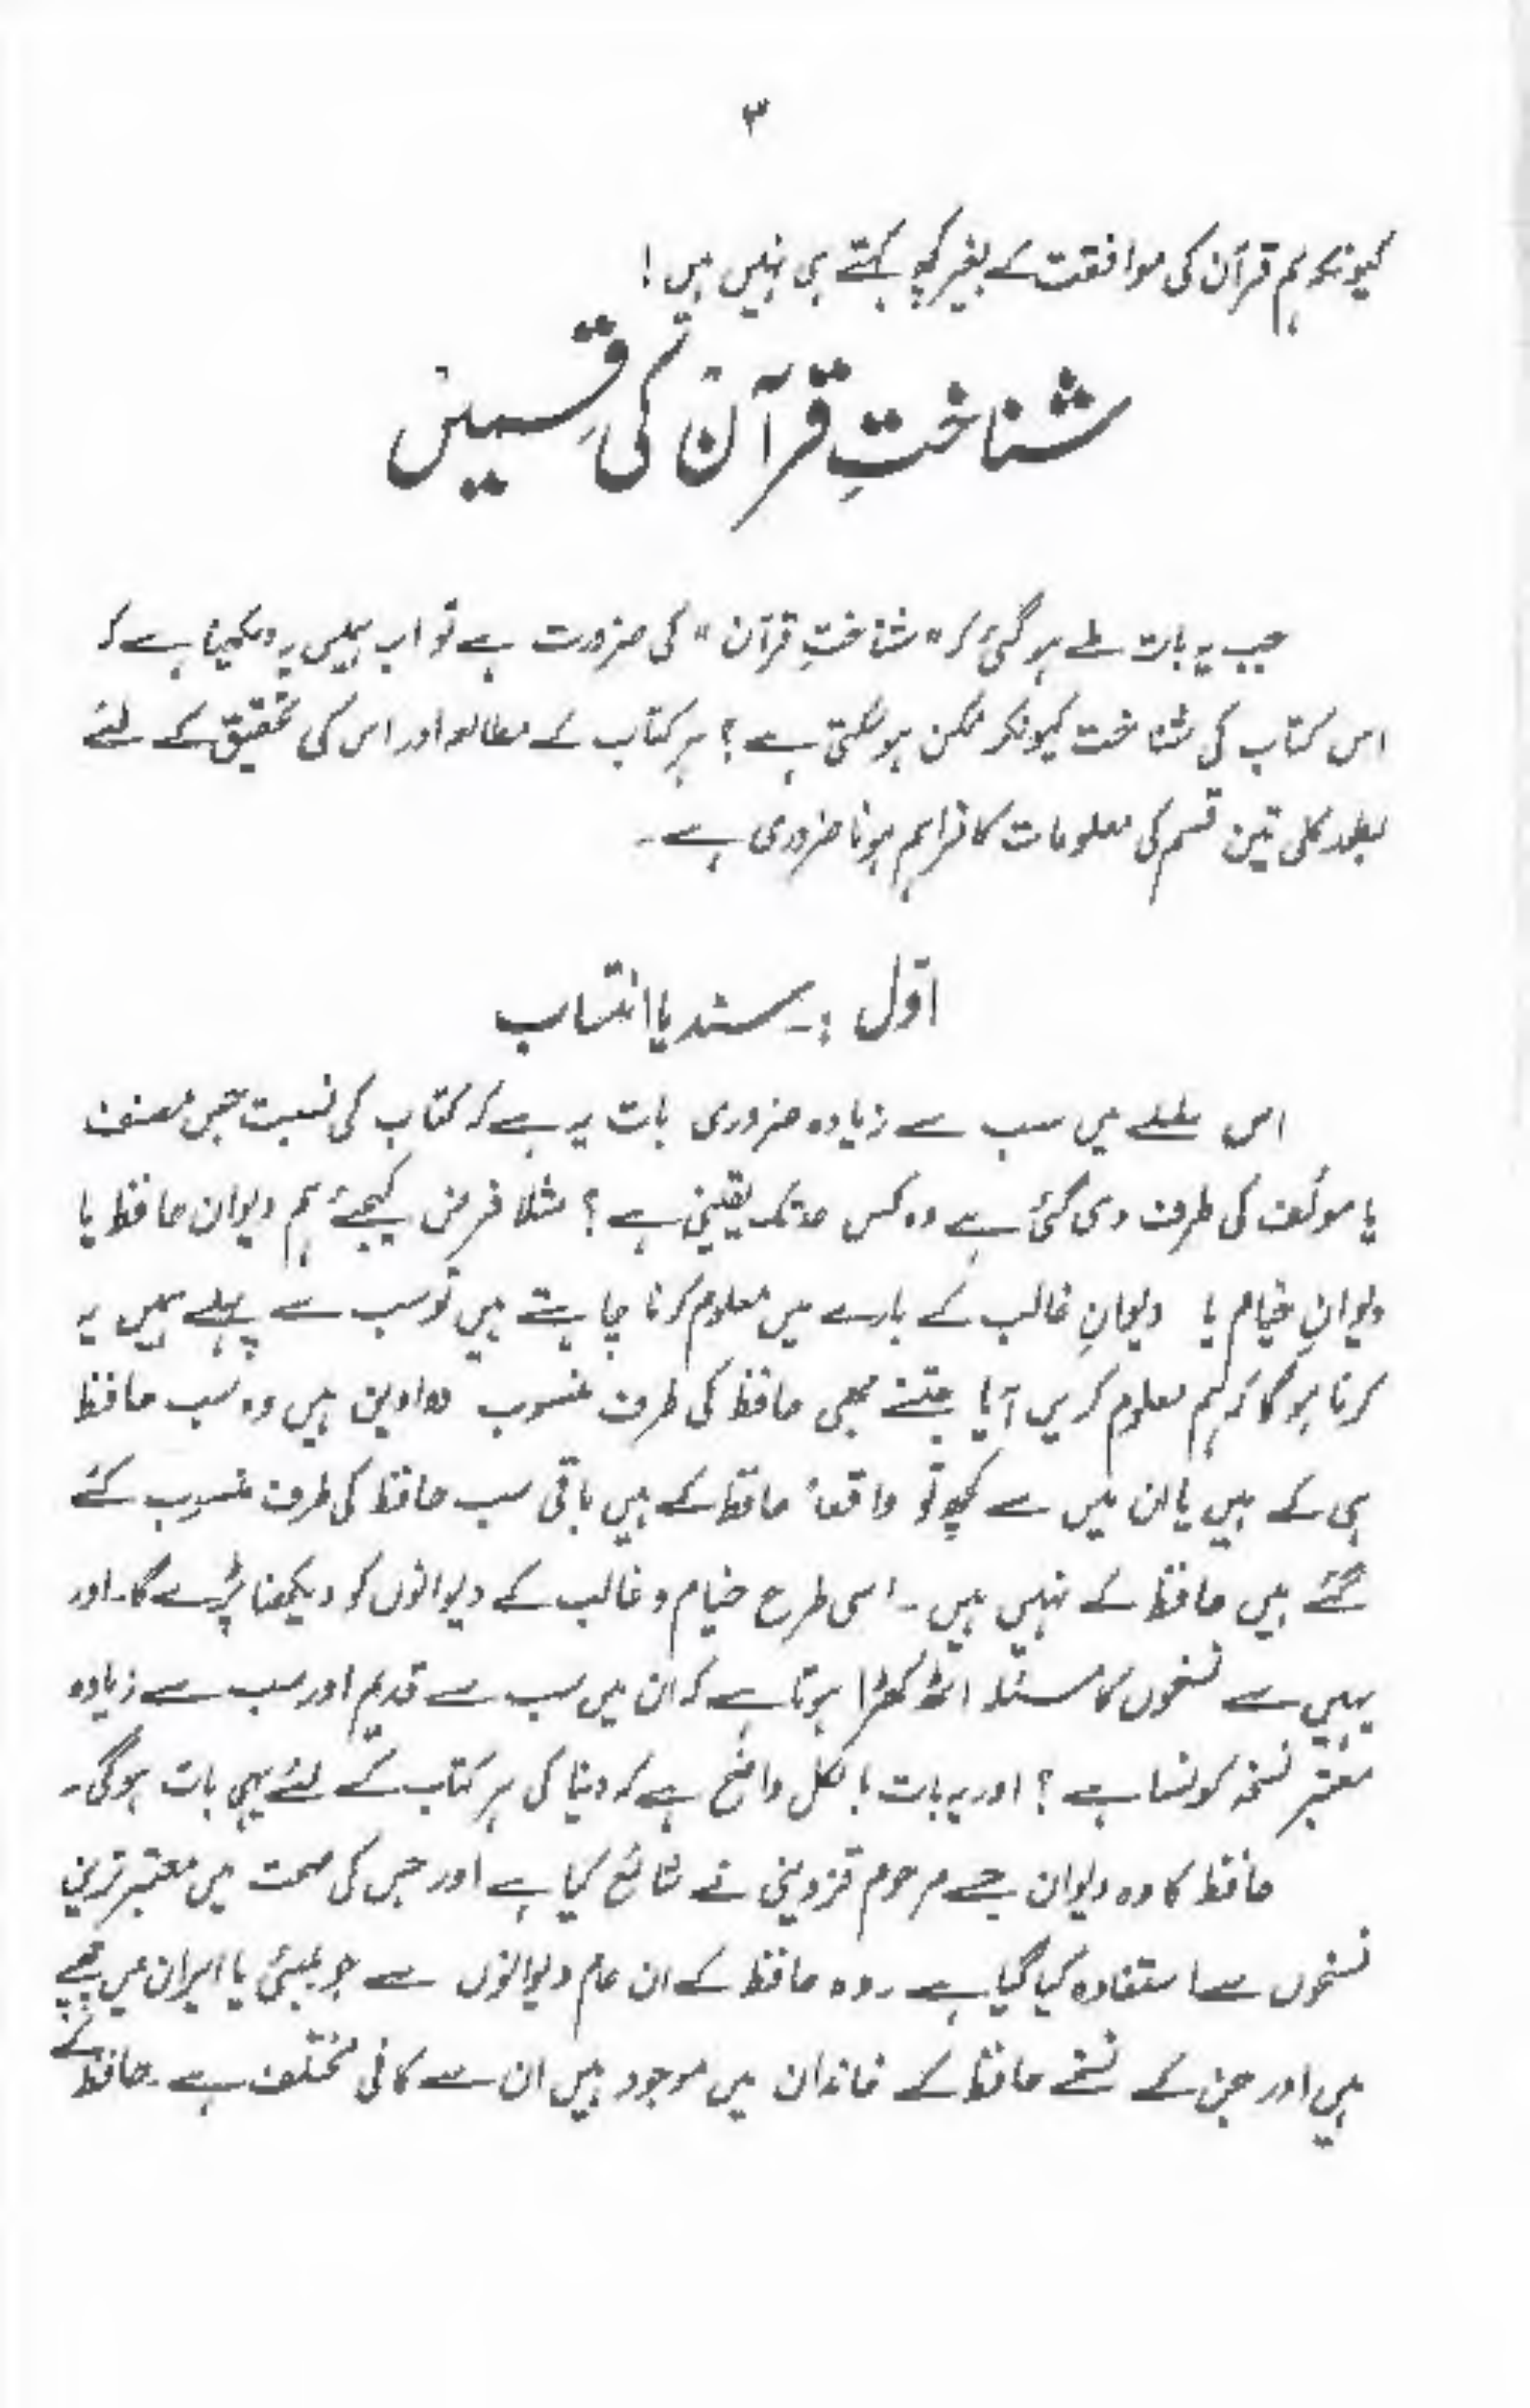 ۳
کیونکہ ہم قرآن کی موافقت کے بغیر کچھ کہتے ہی نہیں ہیں!
شناختِ قرآن کی قِسمیں
جب یہ بات طے ہو گئی کہ "شناختِ قرآن" کی ضرورت ہے تو اب ہمیں یہ دیکھنا ہے کہ
اس کتاب کی شناخت کیونکر ممکن ہو سکتی ہے؟ ہر کتاب کے مطالعہ اور اس کی تحقیق کے لئے
بطور کلی تین قسم کی معلومات کا فراہم ہونا ضروری ہے۔
اوّل :۔ سند یا انتساب
اس سلسلے میں سب سے زیادہ ضروری بات یہ ہے کہ کتاب کی نسبت جس مصنف
یا مولّف کی طرف دی گئی ہے وہ کس حد تک یقینی ہے؟ مثلا فرض کیجئے ہم دیوان حافظ یا
دیوانِ خیام یا دیوانِ غالب کے بارے میں معلوم کرنا چاہتے ہیں تو سب سے پہلے ہمیں یہ
کرنا ہو گا کہ ہم معلوم کریں آیا جتنے بھی حافظ کی طرف منسوب دواوین ہیں وہ سب حافظ
ہی کے ہیں یا ان میں سے کچھ تو واقعاً حافظ کے ہیں باقی سب حافظ کی طرف منسوب کئے
گئے ہیں حافظ کے نہیں ہیں۔ اسی طرح خیام و غالب کے دیوانوں کو دیکھنا پڑے گا۔ اور
یہیں سے نسخوں کا مسئلہ اٹھ کھڑا ہوتا ہے کہ ان میں سب سے قدیم اور سب سے زیادہ
معتبر نسخہ کونسا ہے؟ اور یہ بات بالکل واضح ہے کہ دنیا کی ہر کتاب کے لئے یہی بات ہوگی۔
حافظ کا وہ دیوان جسے مرحوم قزوینی نے شائع کیا ہے اور جس کی صحت میں معتبر ترین
نسخوں سے استفادہ کیا گیا ہے۔ وہ حافظ کے ان عام دیوانوں سے جو بمبئی یا ایران میں چھپے
ہیں اور جن کے نسخے حافظ کے خاندان میں موجود ہیں ان سے کافی مختلف ہے۔ حافظ کے